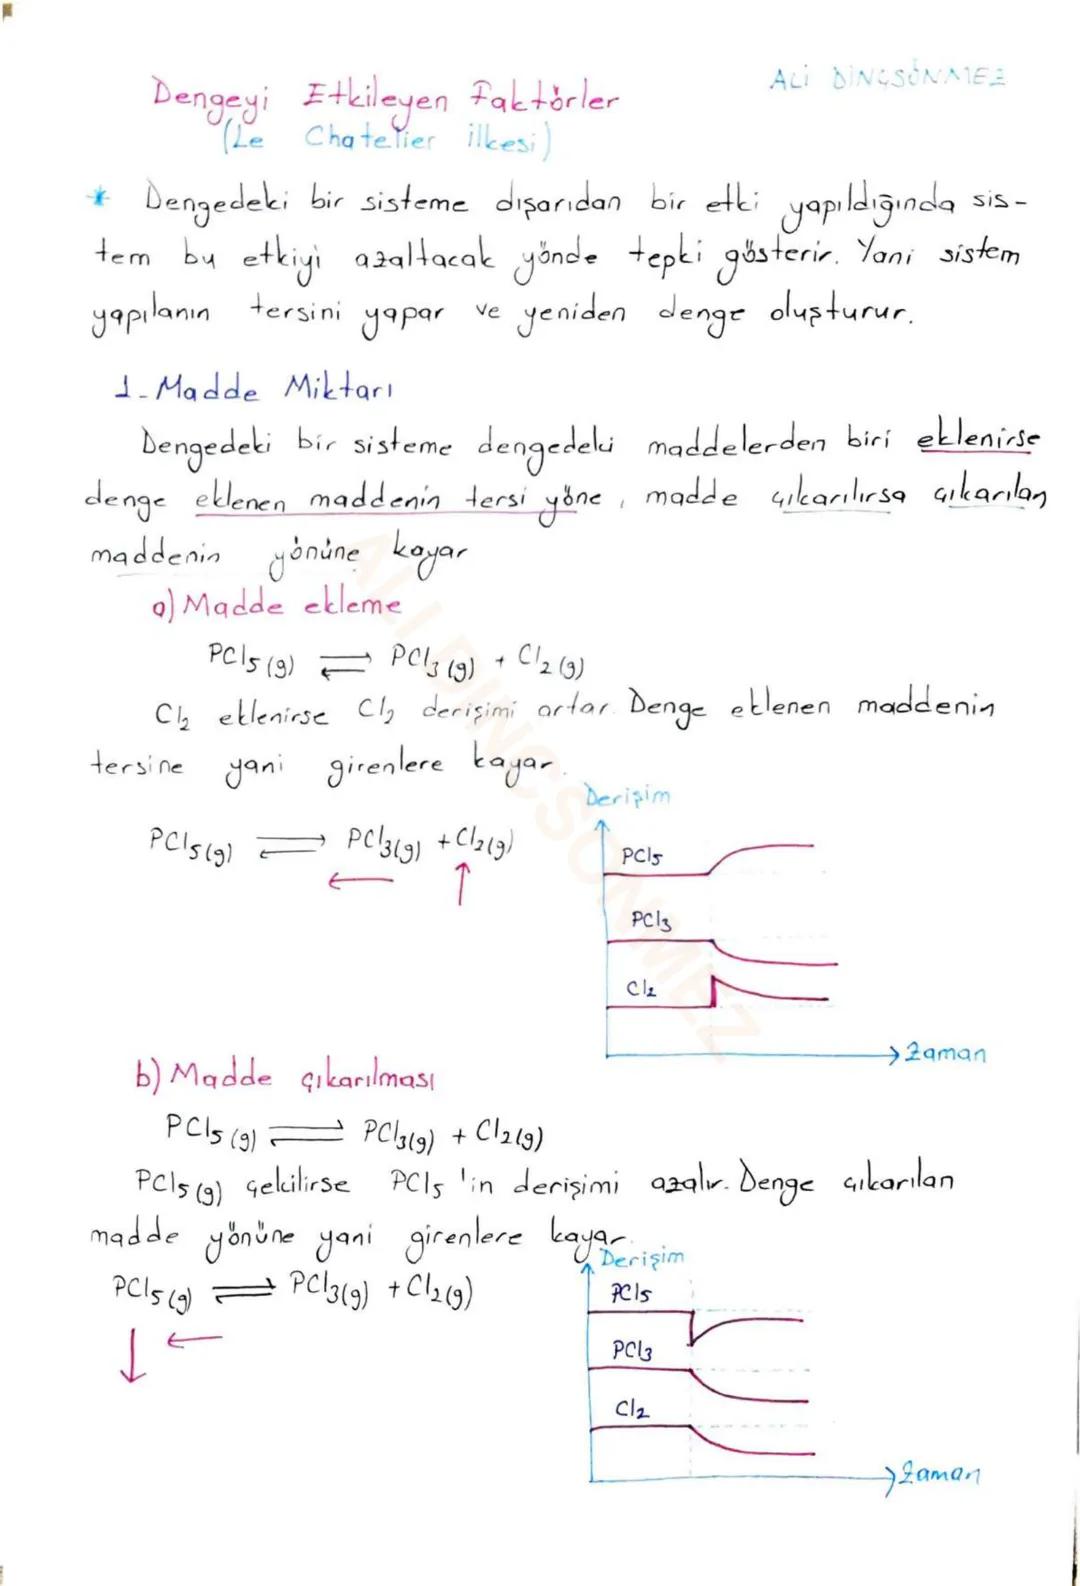 ALİ DİNÇSÖNMEZ
Dengeyi Etkileyen Faktörler
(Le Chatelier ilkesi)
* Dengedeki bir sisteme dışarıdan bir etki yapıldığında sis-
tem bu etkiyi azaltacak yönde tepki gösterir. Yani sistem
yapılanın tersini yapar ve yeniden denge oluşturur.
1- Madde Miktarı
Dengedeki bir sisteme dengedeki maddelerden biri eklenirse
denge eklenen maddenin tersi yöne, madde çıkarılırsa çıkarılan
maddenin yönüne kayar
a) Madde ekleme
PCl5 (g) ⇌ PCl3 (g) + Cl2 (g)
Cl2 eklenirse Cl2 derişimi artar. Denge eklenen maddenin
tersine yani girenlere kayar.
Derişim
PCl5 (g) ⇌ PCl3(g) + Cl2(g)
← ↑
PCl5
PCl3
Cl2
Zaman
b) Madde çıkarılması
PCl5 (g) ⇌ PCl3(g) + Cl2(g)
PCl5 (g) çekilirse PCl5 'in derişimi azalır. Denge çıkarılan
madde yönüne yani girenlere kayar.
Derişim
PCl5 (g) ⇌ PCl3(g) + Cl2(g)
↓ ←
PCl5
PCl3
Cl2
Zaman
ALI DINCSONMEZ